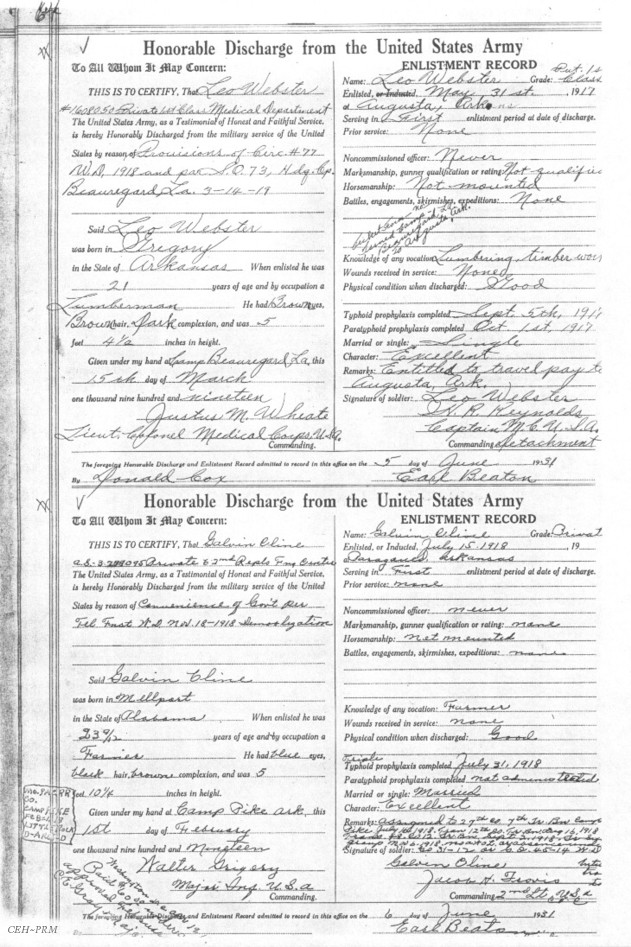 Honorable Discharge from the United States Army
To All Whom It May Concern:
THIS IS TO CERTIFY, That Leo Webster
#1608050 Private 1st Class Medical Department
The United States Army, as a Testimonial of Honest and Faithful Service,
is hereby Honorably Discharged from the military service of the United
States by reason of Provisions of Circ #77
W.D. 1918 and par S.O. 73, Hdq. Cp.
Beauregard, La. 3-14-19
Said Leo Webster
was born in Gregory
in the State of Arkansas When enlisted he was
21 years of age and by occupation a
Lumberman He had Brown eyes,
Brown hair, Dark complexion, and was 5
feet 4½ inches in height.
Given under my hand at Camp Beauregard, La, this
15th day of March
one thousand nine hundred and nineteen
Justus M. Wheate
Lieut. Colonel Medical Corps U.S.A.
Commanding.
ENLISTMENT RECORD
Name: Leo Webster Grade: Pvt. 1st Class
Enlisted, or Inducted, May 31st. 1917
at Augusta, Arkans
Serving in First enlistment period at date of discharge.
Prior service: None
Noncommissioned officer: Never
Marksmanship, gunner qualification or rating: Not qualifie
Horsemanship: Not mounted
Battles, engagements, skirmishes, expeditions: None
Beauregard, La
to Augusta, Ark.
Knowledge of any vocation: Lumbering, timber work
Wounds received in service: None
Physical condition when discharged: Good
Typhoid prophylaxis completed Sept 5th, 1917
Paratyphoid prophylaxis completed Oct 1st, 1917
Married or single: Single
Character: Excellent
Remarks: Entitled to travel pay to
Augusta, Ark.
Signature of soldier: Leo Webster
H. R. Reynolds
Captain M.C. U.S.A.
Commanding detachment
The foregoing Honorable Discharge and Enlistment Record admitted to record in this office on the 5 day of June 1931
By Donald Cox Earl Beaton
Honorable Discharge from the United States Army
To All Whom It May Concern:
THIS IS TO CERTIFY, That Galvin Cline
Private 62nd
The United States Army, as a Testimonial of Honest and Faithful Service,
is hereby Honorably Discharged from the military service of the United
States by reason of Convenience of Govt per
Tel Inst W.D. Nov. 18-1918 Demobilization
Said Galvin Cline
was born in Millport
in the State of Alabama When enlisted he was
23 9/12 years of age and by occupation a
Farmer He had blue eyes,
black hair, brown complexion, and was 5
feet 10¼ inches in height.
Given under my hand at Camp Pike Ark, this
1st day of February
one thousand nine hundred and Nineteen
Walter Grigery
Major Inf. U.S.A
Commanding.
ENLISTMENT RECORD
Name: Galvin Cline Grade: Privat
Enlisted, or Inducted, July 15-1918, 19
Paragould Arkansas
Serving in First enlistment period at date of discharge.
Prior service: none
Noncommissioned officer: never
Marksmanship, gunner qualification or rating: none
Horsemanship: not mounted
Battles, engagements, skirmishes, expeditions: none
Knowledge of any vocation: Farmer
Wounds received in service: none
Physical condition when discharged: Good
Triple
Typhoid prophylaxis completed July 31, 1918
Paratyphoid prophylaxis completed not administered
Married or single: Married
Character: Excellent
Remarks: Assigned to 27th Co. 7th Tr Bn Camp
Pike July 1918.
Signature of soldier:
Galvin Cline
Jacob A.
Commanding 2nd Lt. U.S.A
The foregoing Honorable Discharge and Enlistment Record admitted to record in this office on the 6 day of June 1931
Earl Beaton
CEH-PRM